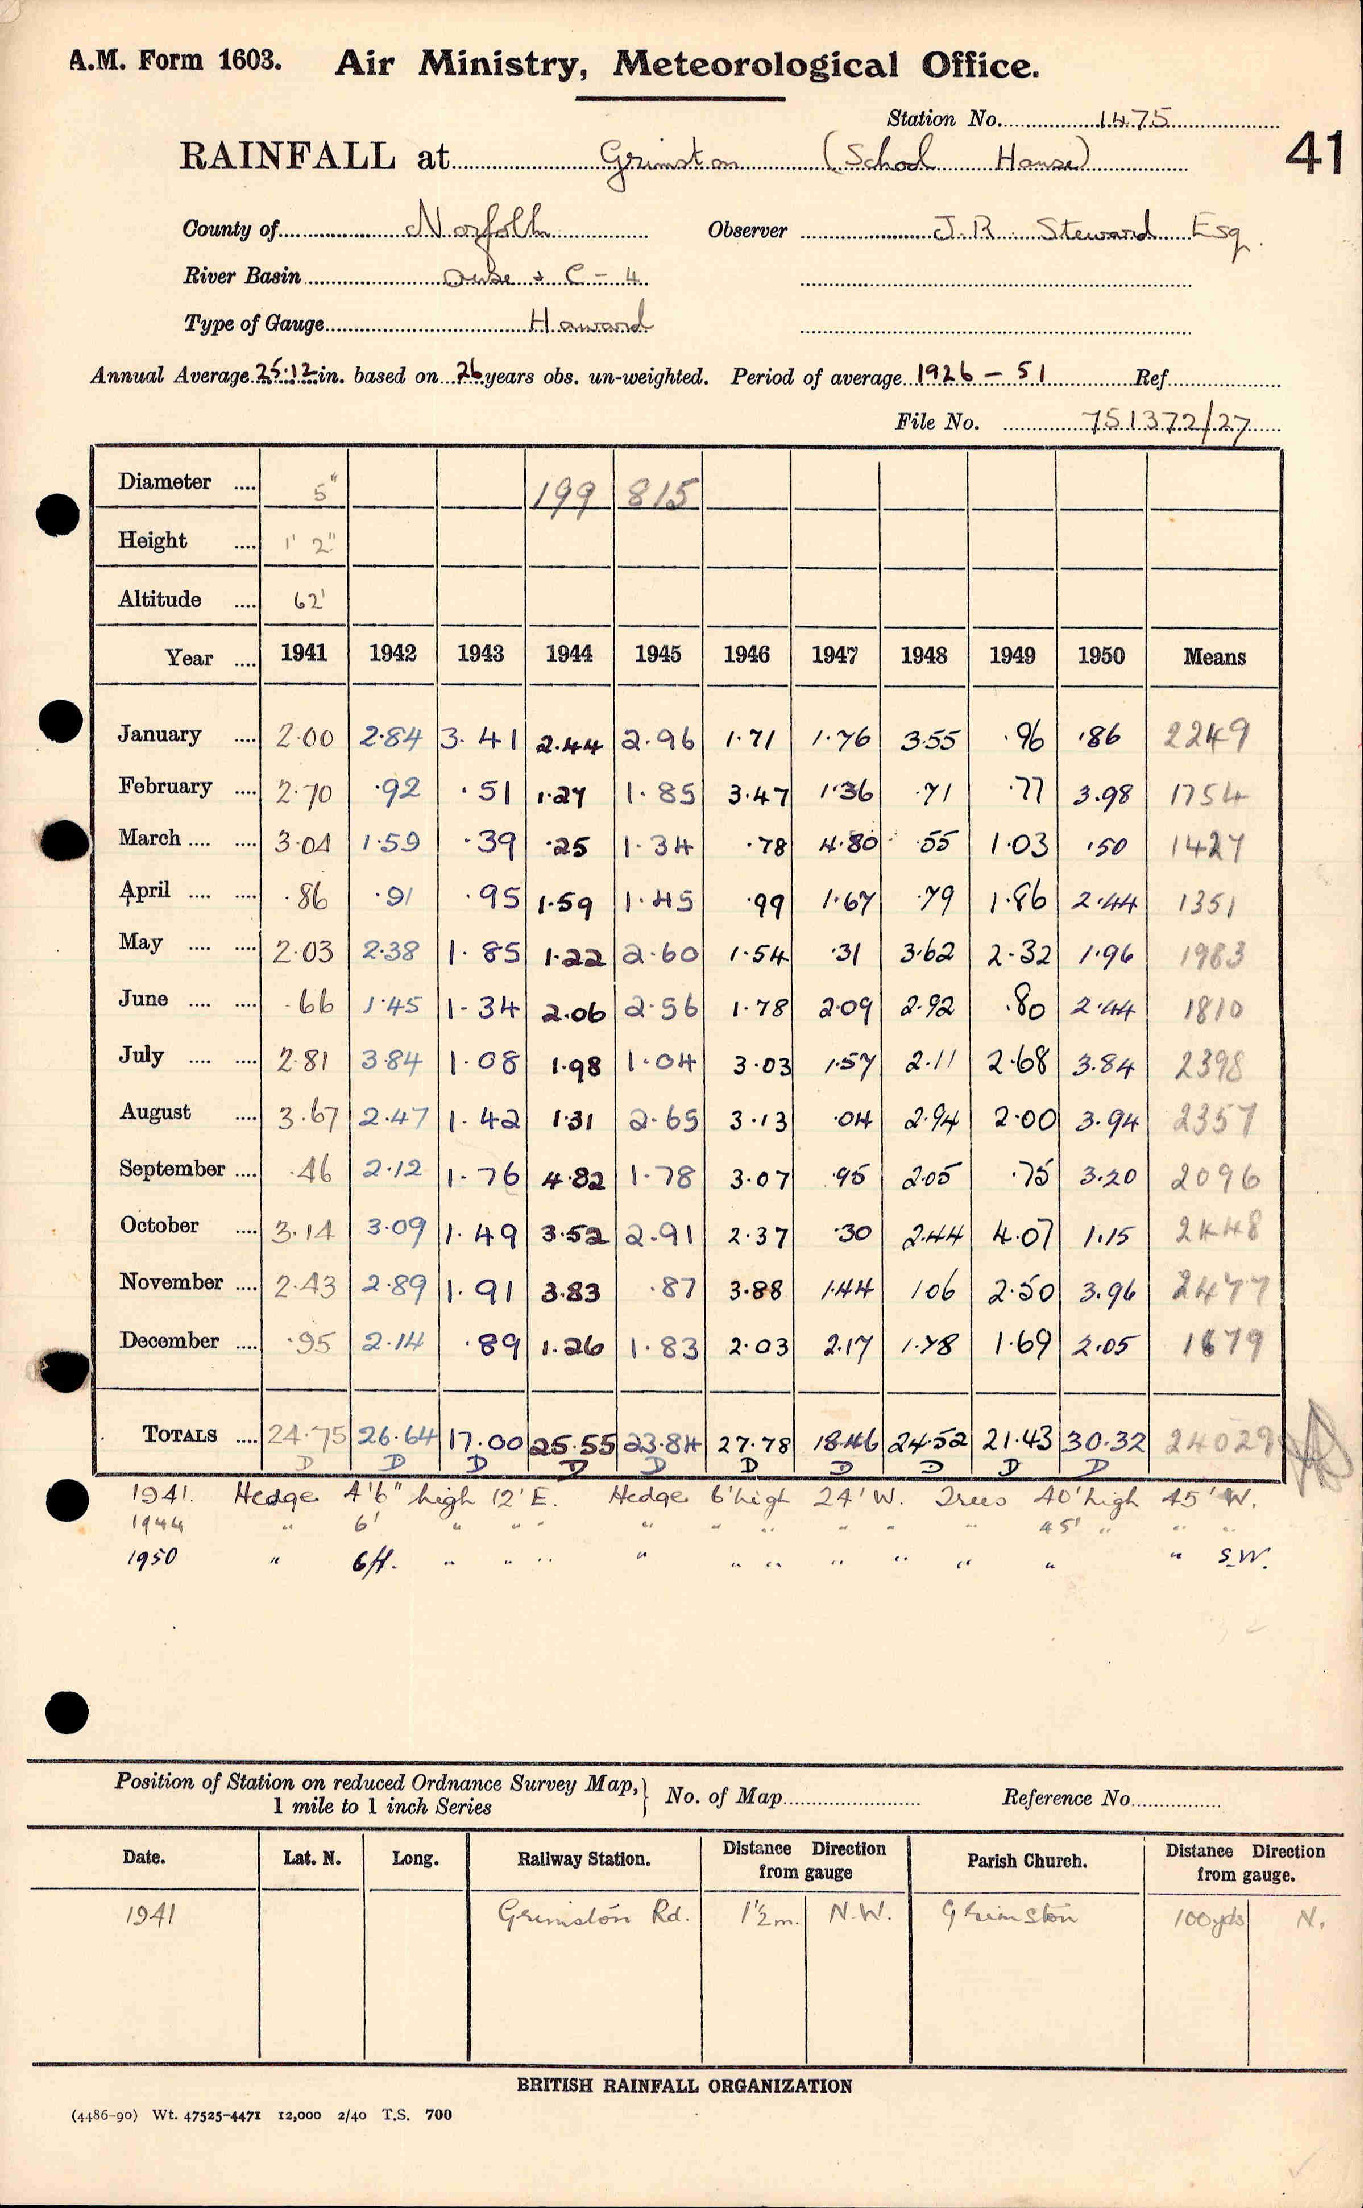 A.M. Form 1603. Air Ministry, Meteorological Office.
Station No. 1475
41
RAINFALL at Grimston (School House)
County of Norfolk Observer J.R. Steward Esq.
River Basin Ouse + C - 4
Type of Gauge Howard
Annual Average 25.12 in. based on 26 years obs. un-weighted. Period of average 1926 - 51 Ref
File No. 751372/27
Diameter .... 5" 199 815
Height .... 1' 2"
Altitude .... 62'
Year .... 1941 1942 1943 1944 1945 1946 1947 1948 1949 1950 Means
January .... 2.00 2.84 3.41 2.44 2.96 1.71 1.76 3.55 .96 .86 2249
February .... 2.70 .92 .51 1.27 1.85 3.47 1.36 .71 .77 3.98 1754
March .... .... 3.04 1.59 .39 .25 1.34 .78 4.80 .55 1.03 .50 1427
April .... .... .86 .91 .95 1.59 1.45 .99 1.67 .79 1.86 2.44 1351
May .... .... 2.03 2.38 1.85 1.22 2.60 1.54 .31 3.62 2.32 1.96 1983
June .... .... .66 1.45 1.34 2.06 2.56 1.78 2.09 2.92 .80 2.44 1810
July .... .... 2.81 3.84 1.08 1.98 1.04 3.03 1.57 2.11 2.68 3.84 2398
August .... 3.67 2.47 1.42 1.31 2.65 3.13 .04 2.94 2.00 3.94 2357
September .... .46 2.12 1.76 4.82 1.78 3.07 .95 2.05 .75 3.20 2096
October .... 3.14 3.09 1.49 3.52 2.91 2.37 .30 2.44 4.07 1.15 2448
November .... 2.43 2.89 1.91 3.83 .87 3.88 1.44 1.06 2.50 3.96 2477
December .... .95 2.14 .89 1.26 1.83 2.03 2.17 1.78 1.69 2.05 1679
TOTALS .... 24.75 26.64 17.00 25.55 23.84 27.78 18.46 24.52 21.43 30.32 24029
D D D D D D D D D D
1941. Hedge 4'6" high 12' E. Hedge 6' high 24' W. Trees 40' high 45' W.
1944 " 6' " " " " " " " " " 45' " " "
1950 " 6ft. " " " " " " " " " " " S.W.
Position of Station on reduced Ordnance Survey Map, } No. of Map Reference No.
1 mile to 1 inch Series
Date. Lat. N. Long. Railway Station. Distance Direction from gauge Parish Church. Distance Direction from gauge.
1941 Grimston Rd. 1½m. N.W. Grimston 100yds N.
BRITISH RAINFALL ORGANIZATION
(4486-90) Wt. 47525-4471 12,000 2/40 T.S. 700